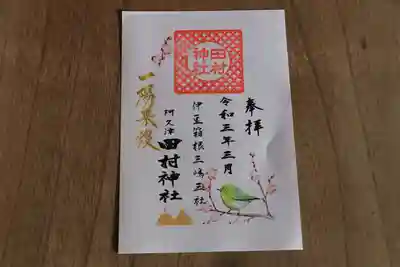 奉拝
令和三年三月
伊豆箱根三嶋
阿久津
田村神社
一陽来復
田村神社